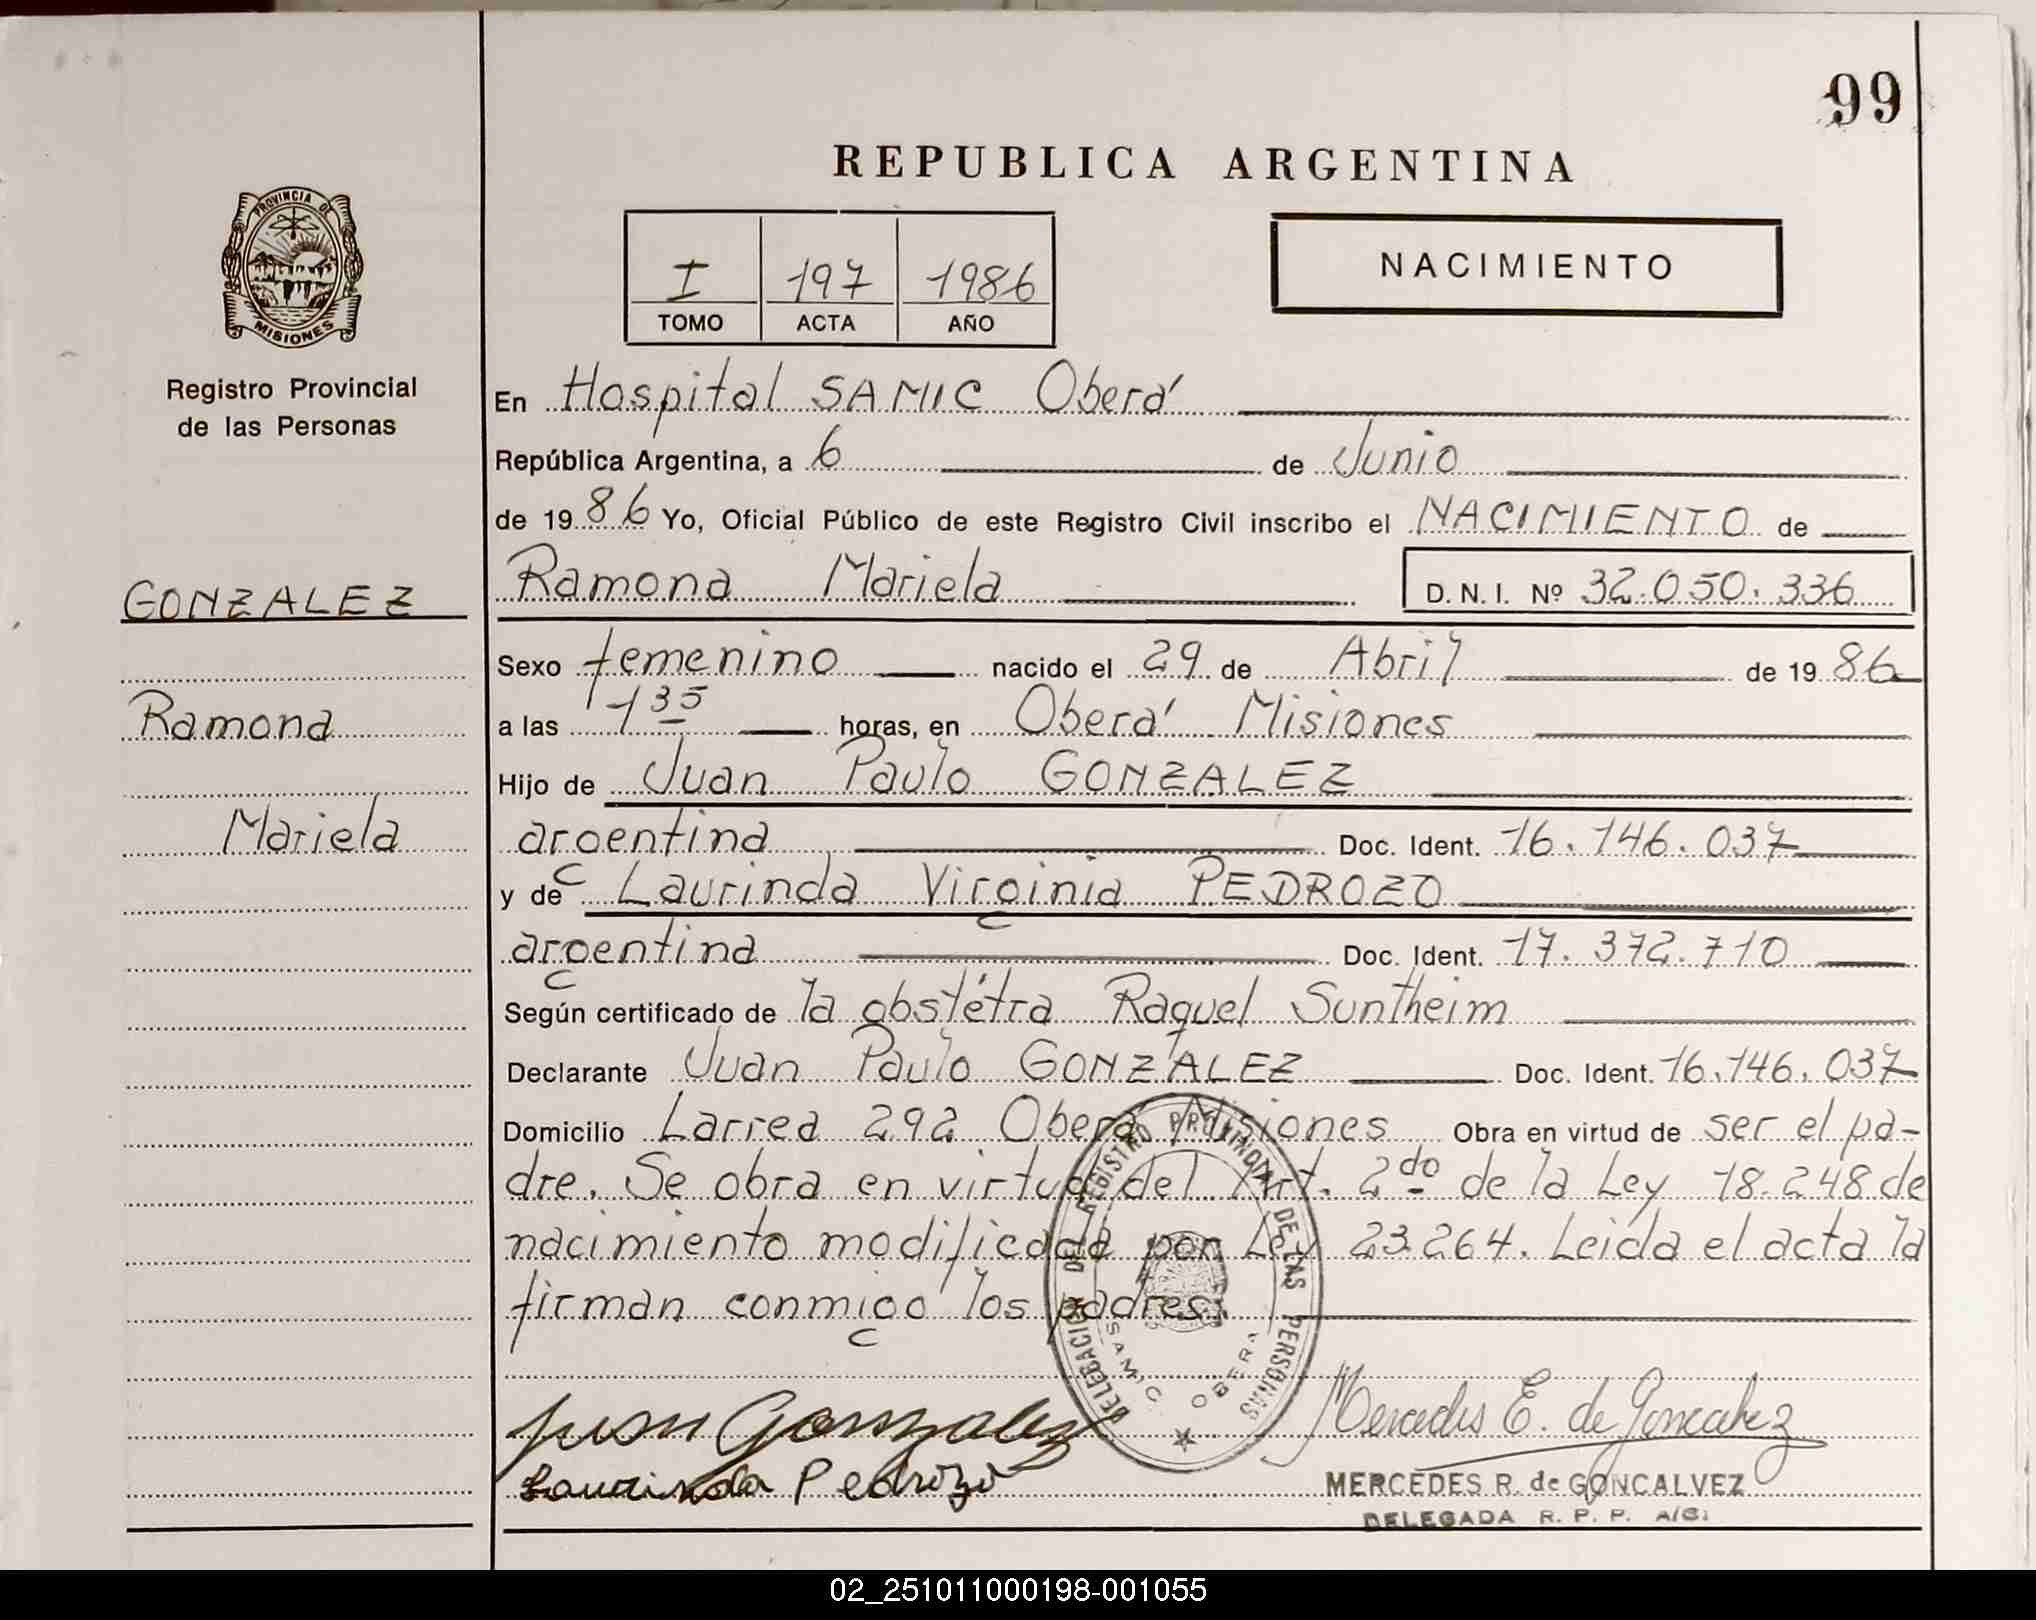 99
REPUBLICA ARGENTINA
PROVINCIA DE
MISIONES
I 197 1986
TOMO ACTA AÑO
NACIMIENTO
Registro Provincial
de las Personas
En Hospital SAMIC Oberá
República Argentina, a 6 de Junio
de 1986 Yo, Oficial Público de este Registro Civil inscribo el NACIMIENTO de
GONZALEZ
Ramona Mariela D. N. I. Nº 32.050.336
Sexo femenino nacido el 29 de Abril de 1986
Ramona
a las 1 35 horas, en Oberá Misiones
Hijo de Juan Paulo GONZALEZ
Mariela
argentina Doc. Ident. 16.146.037
y de Laurinda Virginia PEDROZO
argentina Doc. Ident. 17.372.710
Según certificado de la obstétra Raquel Suntheim
Declarante Juan Paulo GONZALEZ Doc. Ident. 16.146.037
Domicilio Larrea 292 Oberá Misiones Obra en virtud de ser el pa-
dre. Se obra en virtud del Art. 2do de la Ley 18.248 de
nacimiento modificada por Ley 23.264. Leida el acta la
firman conmigo los padres.
DELEGACION DEL REGISTRO PROVINCIAL DE LAS PERSONAS
SAMIC OBERA
Juan Gonzalez
Mercedes E. de Goncalvez
Laurinda Pedrozo
MERCEDES R. de GONCALVEZ
DELEGADA R. P. P. A/C.
02_251011000198-001055